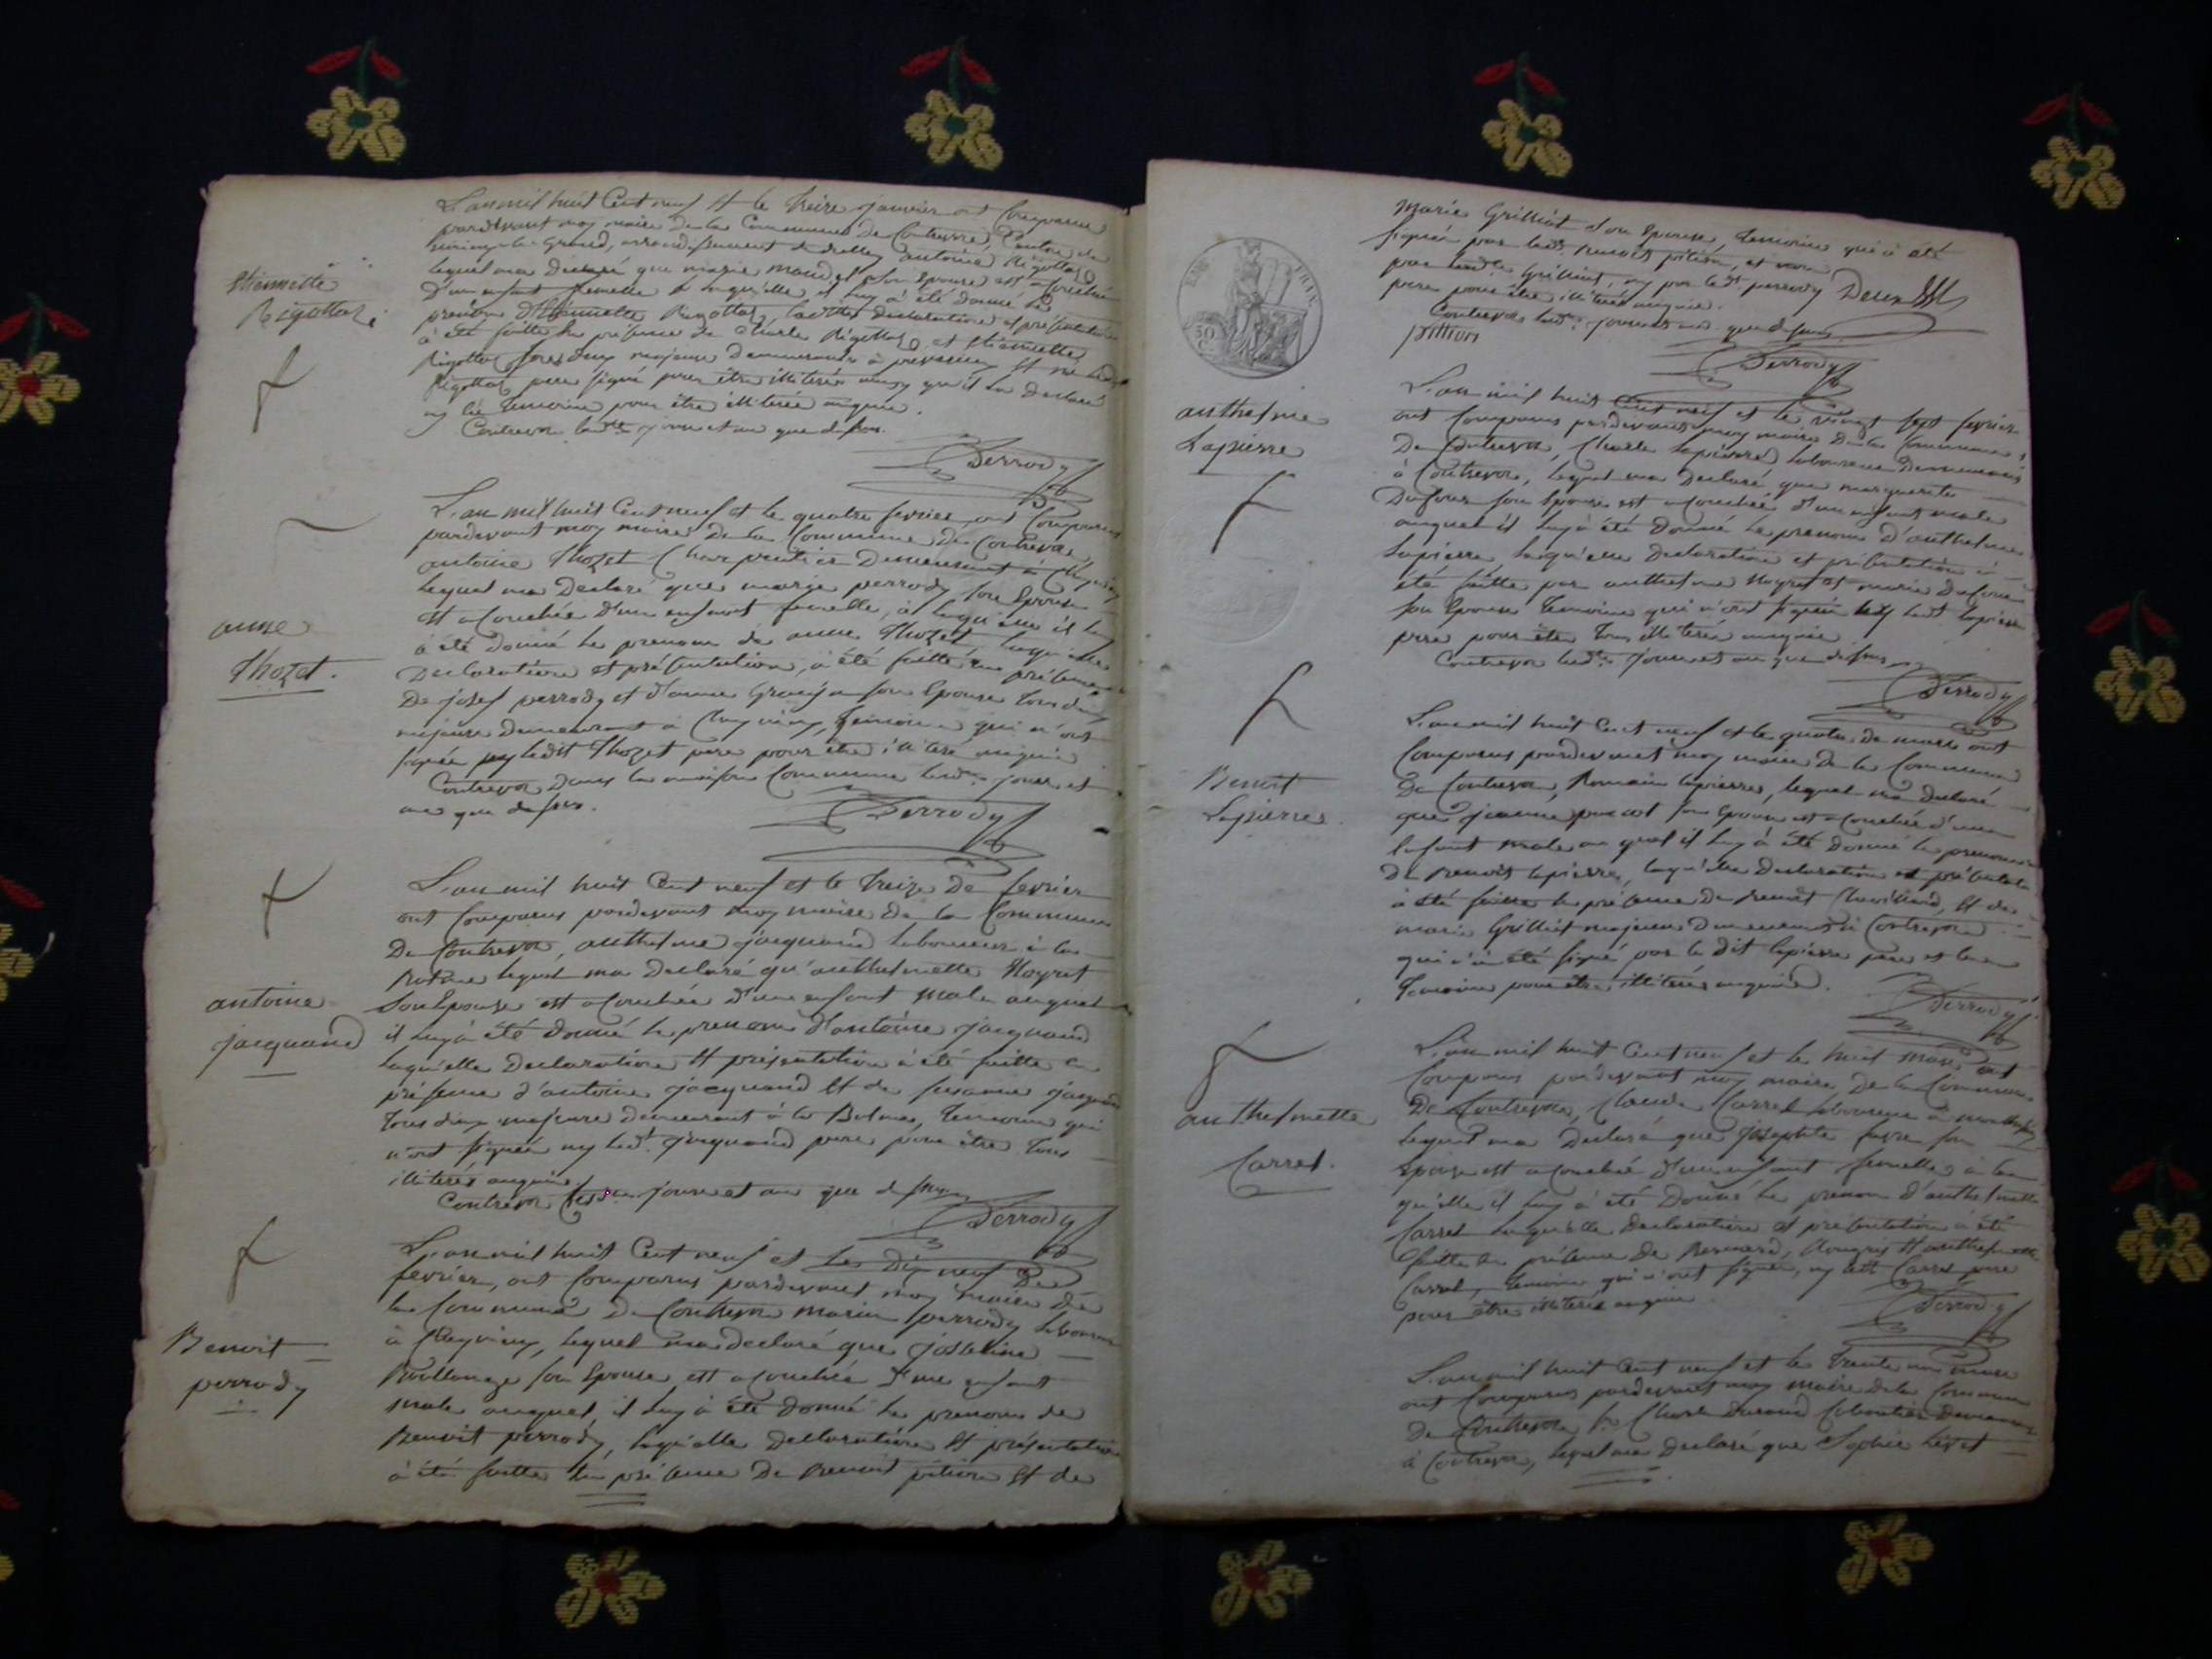 L'an mil huit Cent neuf et le treize janvier ont Comparu
pardevant moy maire de la Commune de Contrevoz, Canton de
virieu le Grand, arrondissement de Belley antoine Rigottaz
lequel ma déclaré que marie son Epouse est acouchée
D'un enfant femelle à laquelle il luy à été donné le
prénom d'Etiennette Rigottaz, laditte declaration et présentation
à été faitte en présence de Charle Rigottaz et Etiennette
Rigottaz tous deux majeurs demeurants à et ne
Rigottaz pere signé pour être illiteré ainsy qu'il la declaré
ny les temoins pour être illiterés enquis.
Contrevoz lesdits jour et an que dessus.
Etiennette
Rigottaz
Perrody
L'an mil huit Cent neuf et le quatre fevrier, ont Comparus
pardevant moy maire de la Commune de Contrevoz
antoine Thozet Charpentier Demeurant à
lequel ma Declaré que marie perrody son Epouse
est acouchée d'un enfant femelle, à laquelle il luy
à été donné le prenom de anne Thozet laquelle
Declaration et présentation, à été faitte en présence
De josef perrody et d'anne son Epouse tous deux
majeurs demeurant à temoins qui n'ont
signés ny ledit Thozet pere pour être illiteré enquis
Contrevoz Dans la maison Commune lesdits jour et
an que dessus.
anne
Thozet.
Perrody
L'an mil huit Cent neuf et le treize De fevrier
ont Comparus pardevant moy maire de la Commune
De Contrevoz, anthelme jacquand laboureur à la
lequel ma declaré qu'anthelmette
son Epouse est acouchée d'un enfant male auquel
il luy à été donné le prenom d'antoine jacquand
laquelle Declaration et présentation à été faitte en
présence d'antoine jacquand et de susanne jacquand
tous deux majeurs demeurant à la Balme, temoins qui
n'ont signés ny led.t jacquand pere pour être tous
illiterés enquis
Contrevoz jour et an que dessus
antoine
jacquand
Perrody
L'an mil huit Cent neuf et le Dix neuf De
fevrier, ont Comparus pardevant moy maire De
la Commune De Contrevoz marin perrody laboureur
à lequel ma declaré que josseline
son Epouse est acouchée d'un enfant
male auquel il luy à été donné le prenom de
Benoit perrody, laquelle declaration et présentation
à été faitte en présence De Benoit pition et de
Benoit
perrody
marie Grilliet son Epouse, temoins qui à été
signée par ledt benoit pition, et non
par ladte Grilliet, ny par ledt perrody
pere pour être illiteré enquis.
Contrevoz lesdits jour et an que dessus
pittion
Perrody
EMP. FRAN.
50
C.
L'an mil huit Cent neuf et le vingt sept fevrier
ont Comparus pardevant moy maire De la Commune
De Contrevoz, Charle lapierre, laboureur Demeurant
à Contrevoz, lequel ma Declaré que marguerite
Dufour son Epouse est acouchée d'un enfant male
auquel il luy à été donné le prenom d'anthelme
lapierre, laquelle declaration et présentation à
été faitte par anthelme et marie Dufour
son Epouse temoins qui n'ont signés ny ledt lapierre
pere pour être tous illiterés enquis
Contrevoz lesdits jour et an que dessus
anthelme
Lapierre
Perrody
L'an mil huit Cent neuf et le quatre de mars ont
Comparus pardevant moy maire De la Commune
De Contrevoz, Romain lapierre, lequel ma declaré
que jeanne son Epouse est acouchée d'un
enfant male au quel il luy à été donné le prenom
De Benoit lapierre, laquelle Declaration et présentation
à été faitte en présence De Benoit et de
marie Grilliet majeurs demeurants à Contrevoz
qui n'à été signé par le dit lapierre pere et les
temoins pour être illiterés enquis.
Benoit
Lapierre.
Perrody
L'an mil huit Cent neuf et le huit mars ont
Comparus pardevant moy maire De la Commune
De Contrevoz, Claude Carrel laboureur à
lequel ma Declaré que josephte favre son
Epouse est acouchée d'un enfant femelle, à la
quelle il luy à été donné le prenom d'anthelmette
Carrel laquelle declaration et présentation à été
faitte en présence De Bernard, et anthelmette
Carrel, temoins qui n'ont signés, ny ledt Carrel pere
pour être illiterés enquis
anthelmette
Carrel.
Perrody
L'an mil huit Cent neuf et le trente un mars
ont Comparus pardevant moy maire dela Commune
de Contrevoz Sr Charle Durand Demeurant
à Contrevoz, lequel ma declaré que Sophie